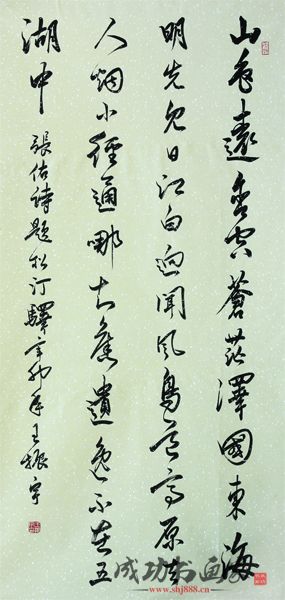 山色遠含空蒼茫澤國東海
明先見日江白迥聞風鳥道高原去
人烟小徑通哪知舊遺逸不在五
湖中 張佑詩題松汀驛 辛卯年王振宇
成功书画家
www.shj888.cn